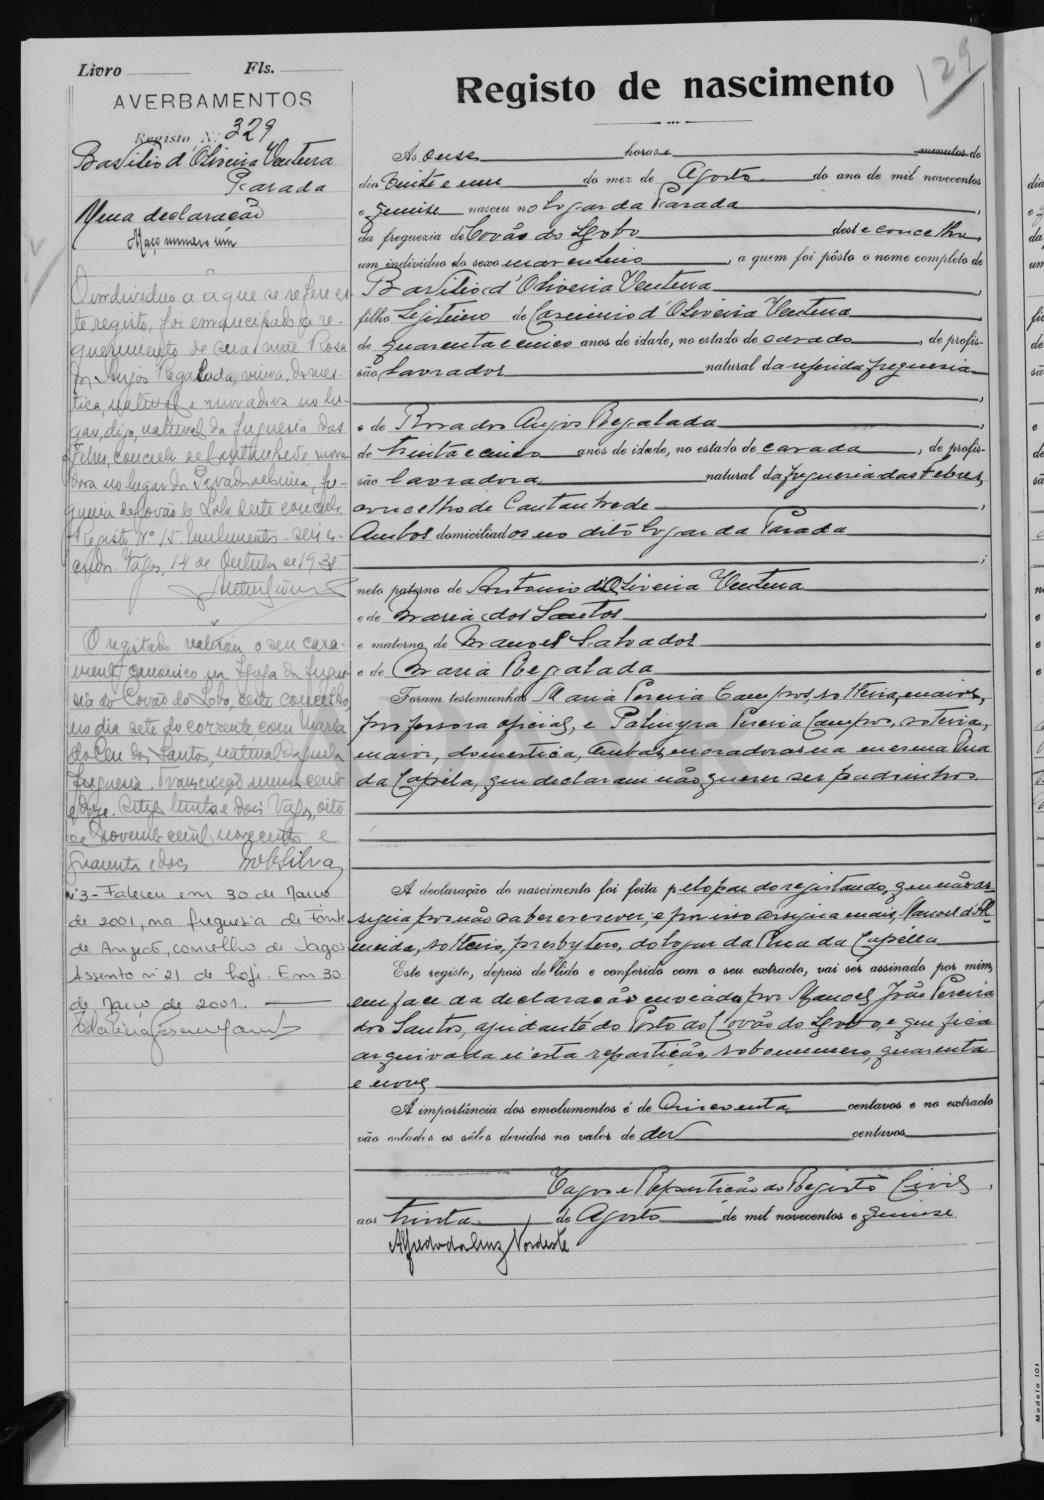 Livro Fls.
AVERBAMENTOS
Registo N.º 329
Basilio d'Oliveira Ventura
Parada
Uma declaração
Março numero um
O individuo a que se refere es-
te registo, foi emancipado a re-
querimento de sua mãe Rosa
dos Anjos Regalada, viuva, domes-
tica, natural e moradora no lu-
gar, digo, natural da freguesia das
Febres, concelho de Cantanhede, mora-
dora no lugar da Parada de Cima, fre-
guesia de Covão do Lobo deste concelho.
Registo Nº 15 Emolumentos
Vagos, 14 de Outubro de 1935
O registado realizou o seu casa-
mento canonico na Igreja da fregue-
sia do Covão do Lobo, deste concelho,
no dia sete do corrente com Maria
dos Santos, natural daquela
freguesia.
doze. trinta e dois Vagos, oito
de Novembro de mil novecentos e
quarenta e dois Silva
Nº 3 - Faleceu em 30 de Março
de 2001, na freguesia de Fonte
de Angeão, concelho de Vagos
Assento nº 21 de hoje. Em 30
de Março de 2001.
129
Registo de nascimento
Ás onze horas e minutos do
dia vinte e um do mez de Agosto do ano de mil novecentos
e quinze nasceu no logar da Parada
da freguezia de Covão do Lobo deste concelho,
um individuo do sexo masculino, a quem foi pôsto o nome completo de
Basilio d'Oliveira Ventura
filho legitimo de Casimiro d'Oliveira Ventura
de quarenta e cinco anos de idade, no estado de casado, de profis-
são lavrador natural da referida freguesia
e de Rosa dos Anjos Regalada
de trinta e cinco anos de idade, no estado de casada, de profis-
são lavradora natural da freguesia das Febres,
concelho de Cantanhede
Ambos domiciliados no dito logar da Parada
neto paterno de Antonio d'Oliveira Ventura
e de Maria dos Santos
e materno de Manoel Salvador
e de Maria Regalada
Foram testemunhas Maria Pereira Campos, solteira, maior,
professora oficial, e Palmyra Pereira Campos, solteira,
maior, domestica, ambas moradoras na mesma Rua
da Capéla, que declaram não querer ser padrinhos
A declaração do nascimento foi feita pelo pai do registando, que não as-
signa por não saber escrever, e por isso assigna mais, Manoel d'Al-
meida, solteiro, presbytero, do logar da Rua da Capélla
Este registo, depois de lido e conferido com o seu extracto, vai ser assinado por mim,
em face da declaração enviada por Manoel João Pereira
dos Santos, ajudante do Posto do Covão do Lobo, e que fica
arquivada n'esta repartição, sob o numero quarenta
e nove
A importância dos emolumentos é de cincoenta centavos e no extracto
vão colados os sêlos devidos no valor de dez centavos
Vagos e Repartição do Registo Civil,
aos trinta de Agosto de mil novecentos e quinze
Alfredo da Cruz Nordeste
Modelo 101